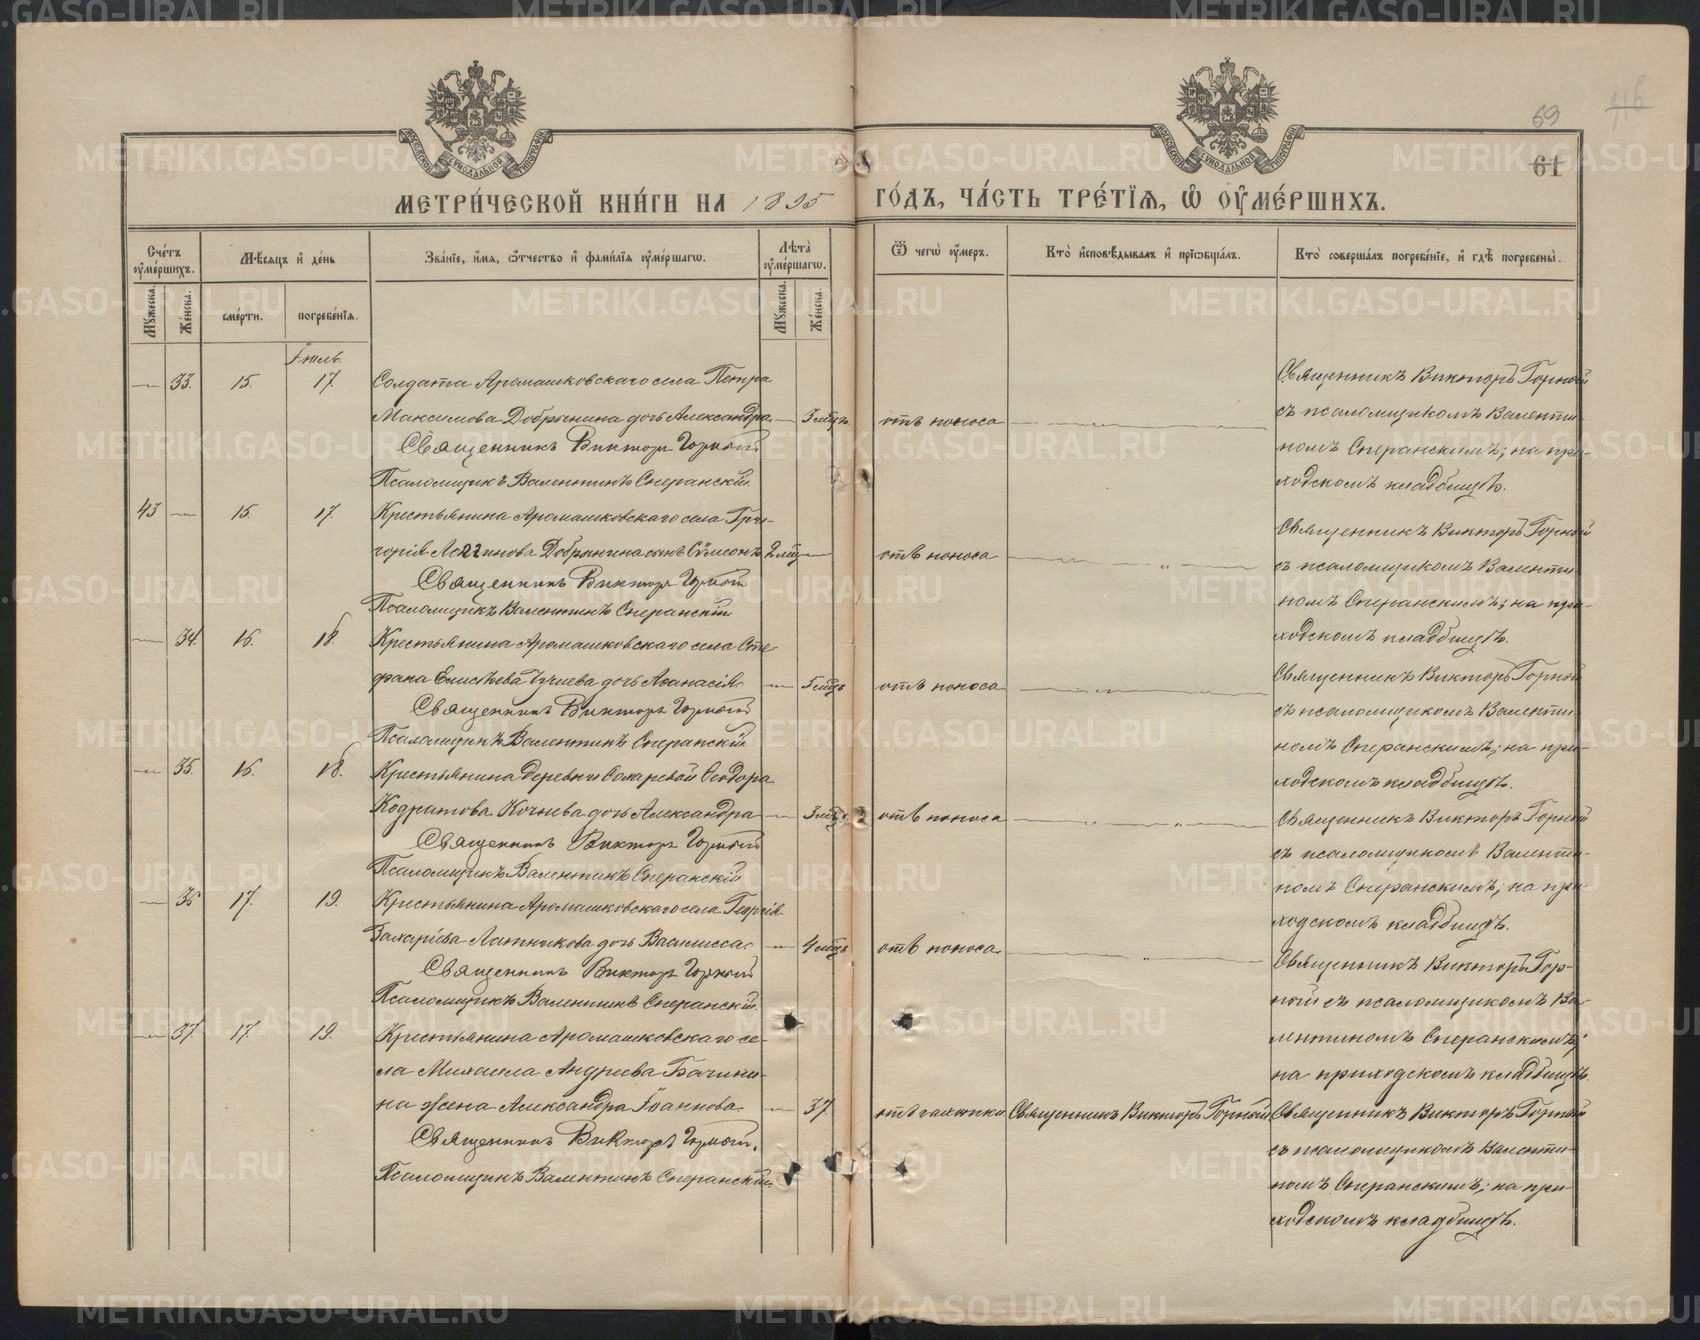 69
61
МЕТРИ́ЧЕСКОЙ КНИ́ГИ НА 1895 ГО́ДЪ, ЧА́СТЬ ТРЕ́ТЇѦ, Ѡ҆ ОУ҆МЕ́РШИХЪ.
Сче́тъ оу҆ме́ршихъ.
Мꙋ́жеска.
Же́нска.
Мѣ́сѧцъ и҆ де́нь
сме́рти.
погребе́нїѧ.
Зва́нїе, и҆́мѧ, ѻ҆́тчество и҆ фами́лїѧ оу҆ме́ршагѡ.
Лѣ́та оу҆ме́ршагѡ.
Мꙋ́жеска.
Же́нска.
Ѿ чегѡ̀ оу҆́меръ.
Кто̀ и҆сповѣ́дывалъ и҆ прїѡбща́лъ.
Кто̀ соверша́лъ погребе́нїе, и҆ гдѣ̀ погребены̀.
Іюль.
33. 15. 17. Солдата Арамашковскаго села Петра
Максимова Добрынина дочь Александра. 3 мѣц. отъ поноса
Священникъ Викторъ Горной
Псаломщикъ Валентинъ Сперанскій
Священникъ Викторъ Горной
съ псаломщикомъ Валенти-
номъ Сперанскимъ; на при-
ходскомъ кладбищѣ.
43 15. 17. Крестьянина Арамашковскаго села Гри-
горія Логгинова Добрынина сынъ Сѵмеонъ 2 мѣц отъ поноса
Священникъ Викторъ Горной
Псаломщикъ Валентинъ Сперанскій
Священникъ Викторъ Горной
съ псаломщикомъ Валенти-
номъ Сперанскимъ; на при-
ходскомъ кладбищѣ.
34. 16. 18. Крестьянина Арамашковскаго села Сте-
фана Елисѣева дочь Аѳанасія 5 мѣц отъ поноса
Священникъ Викторъ Горной
Псаломщикъ Валентинъ Сперанскій
Священникъ Викторъ Горной
съ псаломщикомъ Валенти-
номъ Сперанскимъ; на при-
ходскомъ кладбищѣ.
35. 16. 18. Крестьянина деревни Сохаревой Ѳеодора
Кодратова Кочнева дочь Александра 3 мѣц отъ поноса
Священникъ Викторъ Горной
Псаломщикъ Валентинъ Сперанскій
Священникъ Викторъ Горной
съ псаломщикомъ Валенти-
номъ Сперанскимъ; на при-
ходскомъ кладбищѣ.
36 17. 19. Крестьянина Арамашковскаго села Георгія
Захаріева Латникова дочь Василисса 4 мѣц отъ поноса
Священникъ Викторъ Горной
Псаломщикъ Валентинъ Сперанскій.
Священникъ Викторъ Гор-
ной съ псаломщикомъ Ва-
лентиномъ Сперанскимъ;
на приходскомъ кладбищѣ.
37. 17. 19. Крестьянина Арамашковскаго се-
ла Михаила Андреева Бачини-
на жена Александра Іоаннова 37 отъ чахотки Священникъ Викторъ Горной
Священникъ Викторъ Горной.
Псаломщикъ Валентинъ Сперанскій
Священникъ Викторъ Горной
съ псаломщикомъ Валенти-
номъ Сперанскимъ; на при-
ходскомъ кладбищѣ.
METRIKI.GASO-URAL.RU